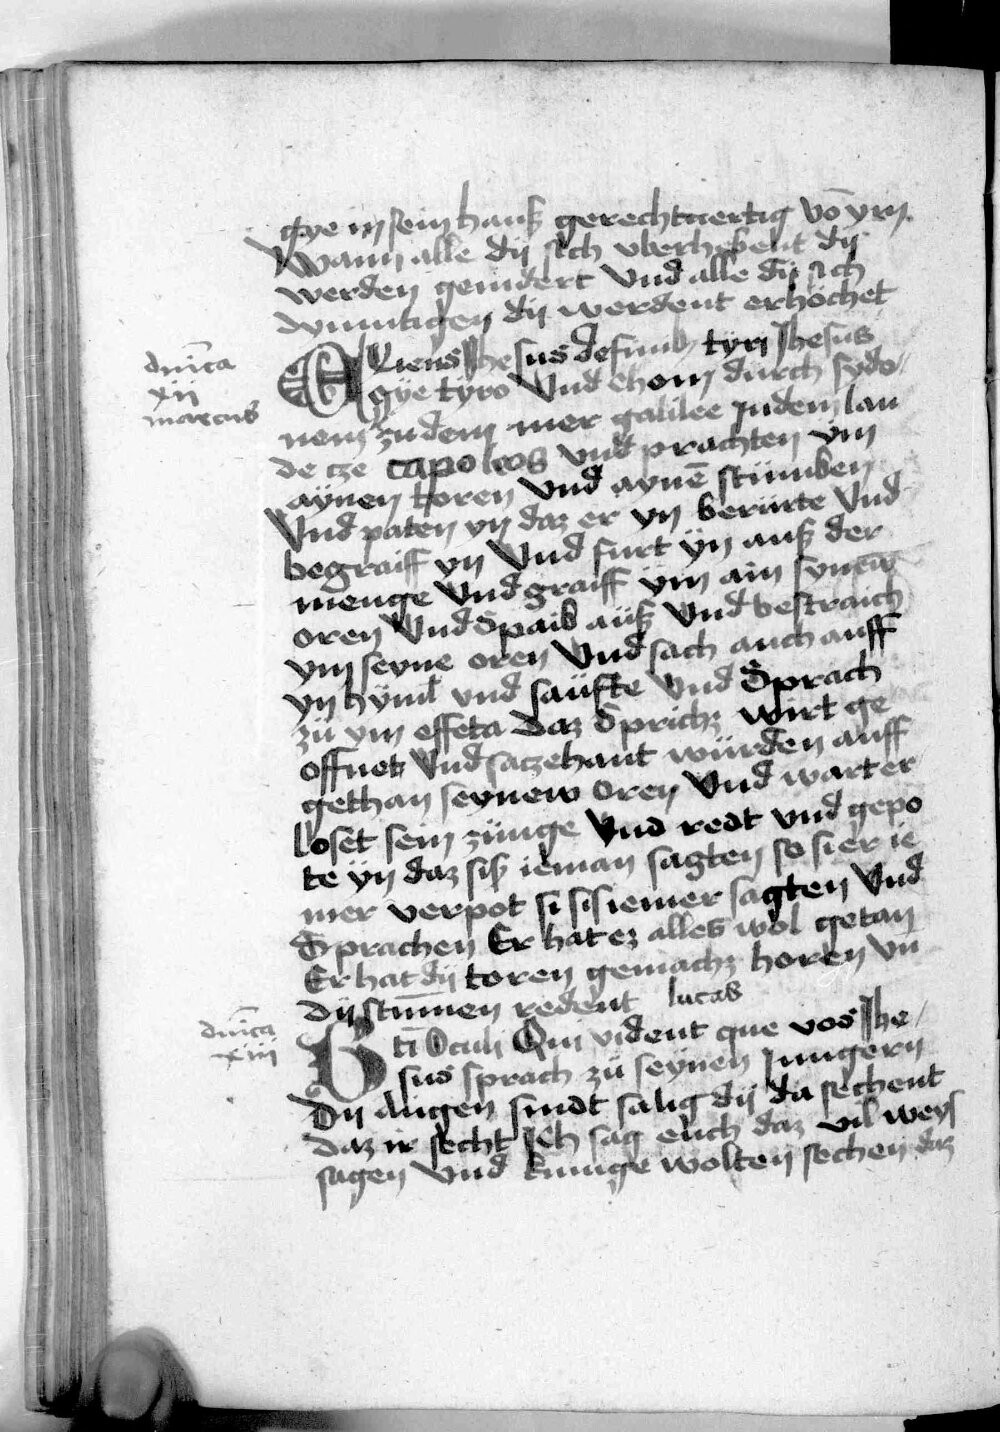 gye in sein hauß gerechtuertig võ ym
Wann alle dij sich vberhebent dij
werden genidert Vnd alle dij sich
dymutigen dij werdent erhöchet
dnica
xii
marcus
EXiens Jhesus de finib3 tyri Jhesus
gye tyro Vnd chom durch sydo
nem zu dem mer galilee In dem lan
de cze capoleos vnd prachten ym
aynen toren Vnd aynē stummben
Vnd paten yn daz er yn berürte Vnd
begraiff yn Vnd furt yn auß der
menge Vnd graiff ym ain synew
oren Vnd Spaib auß Vnd bestraich
ym seyne oren Vnd sach auch auff
yn hyml vnd saüfte Vnd Sprach
zü ym effeta daz Sprichz wirt ge
offnet Vnd saczehant würden auff
gethan seynew oren Vnd wart er
loset sein zünge Vnd redt vnd gepo
te yn daz siß ieman sagten so si er ie
mer verpot si sis iemer sagten Vnd
Sprachen Er hat ez alles wol getan
Er hat dij toren gemachz horen vn
dij stummen redent lucas
dnica
xiii
Bti Oculi Qui vident que vos Jhe
sus sprach zü seynen Jungern
Dij Augen sindt salig dij da sechent
daz ir secht Ich sag euch daz vil weys
sagen vnd kunige wolten sechen daz